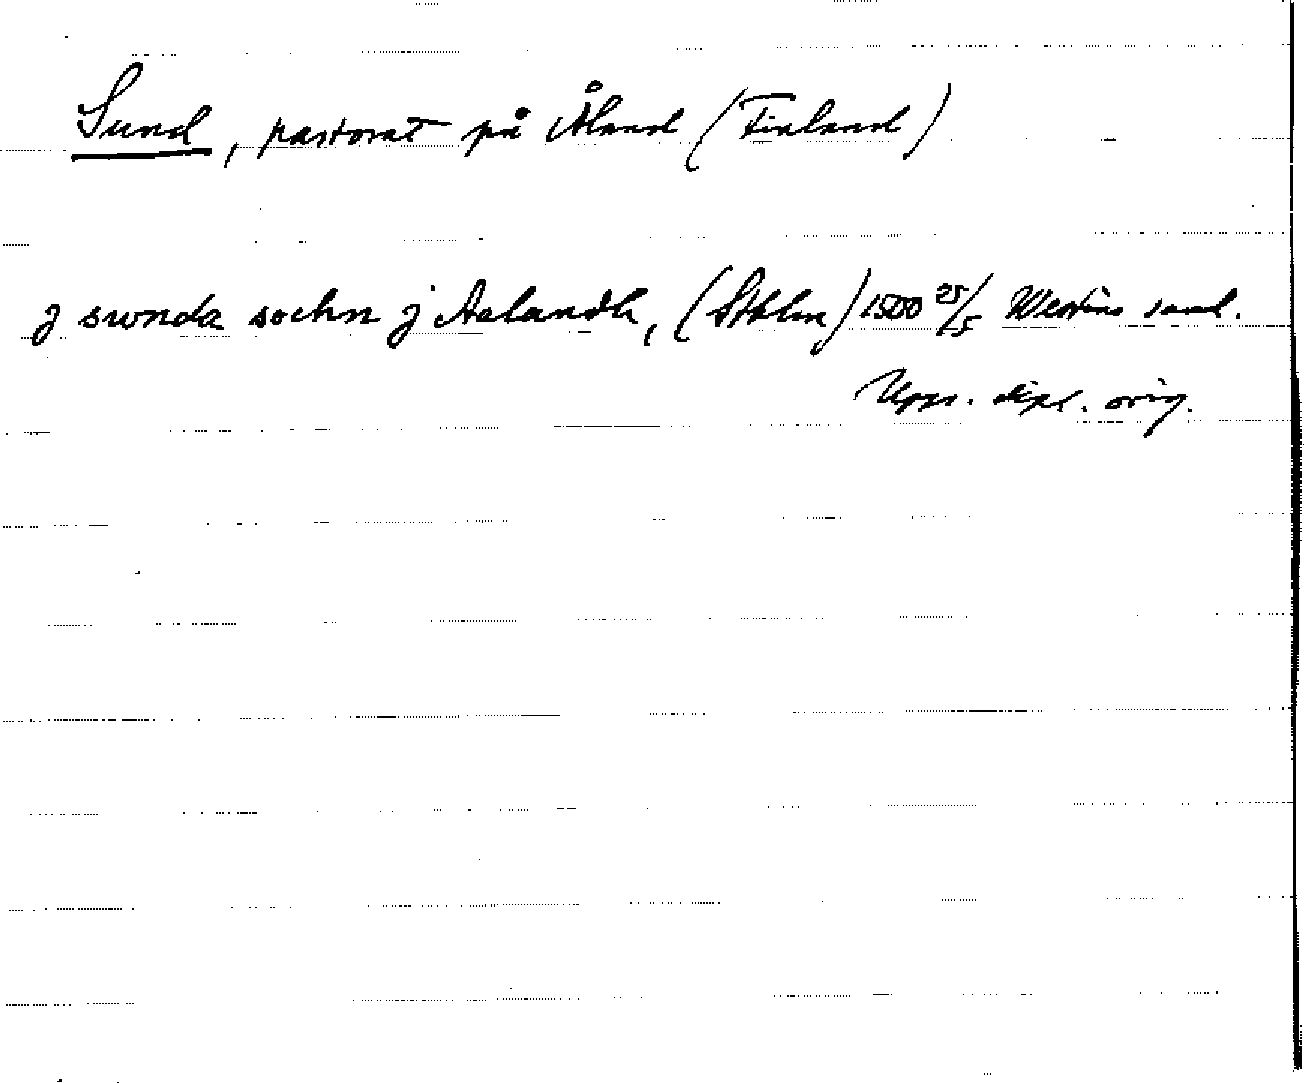 Sund, pastorat på Åland (Finland)
j swnda sochn j Aalandh, (Sthlm) 1500 25/5 Westins saml.
Upps. dipl. orig.